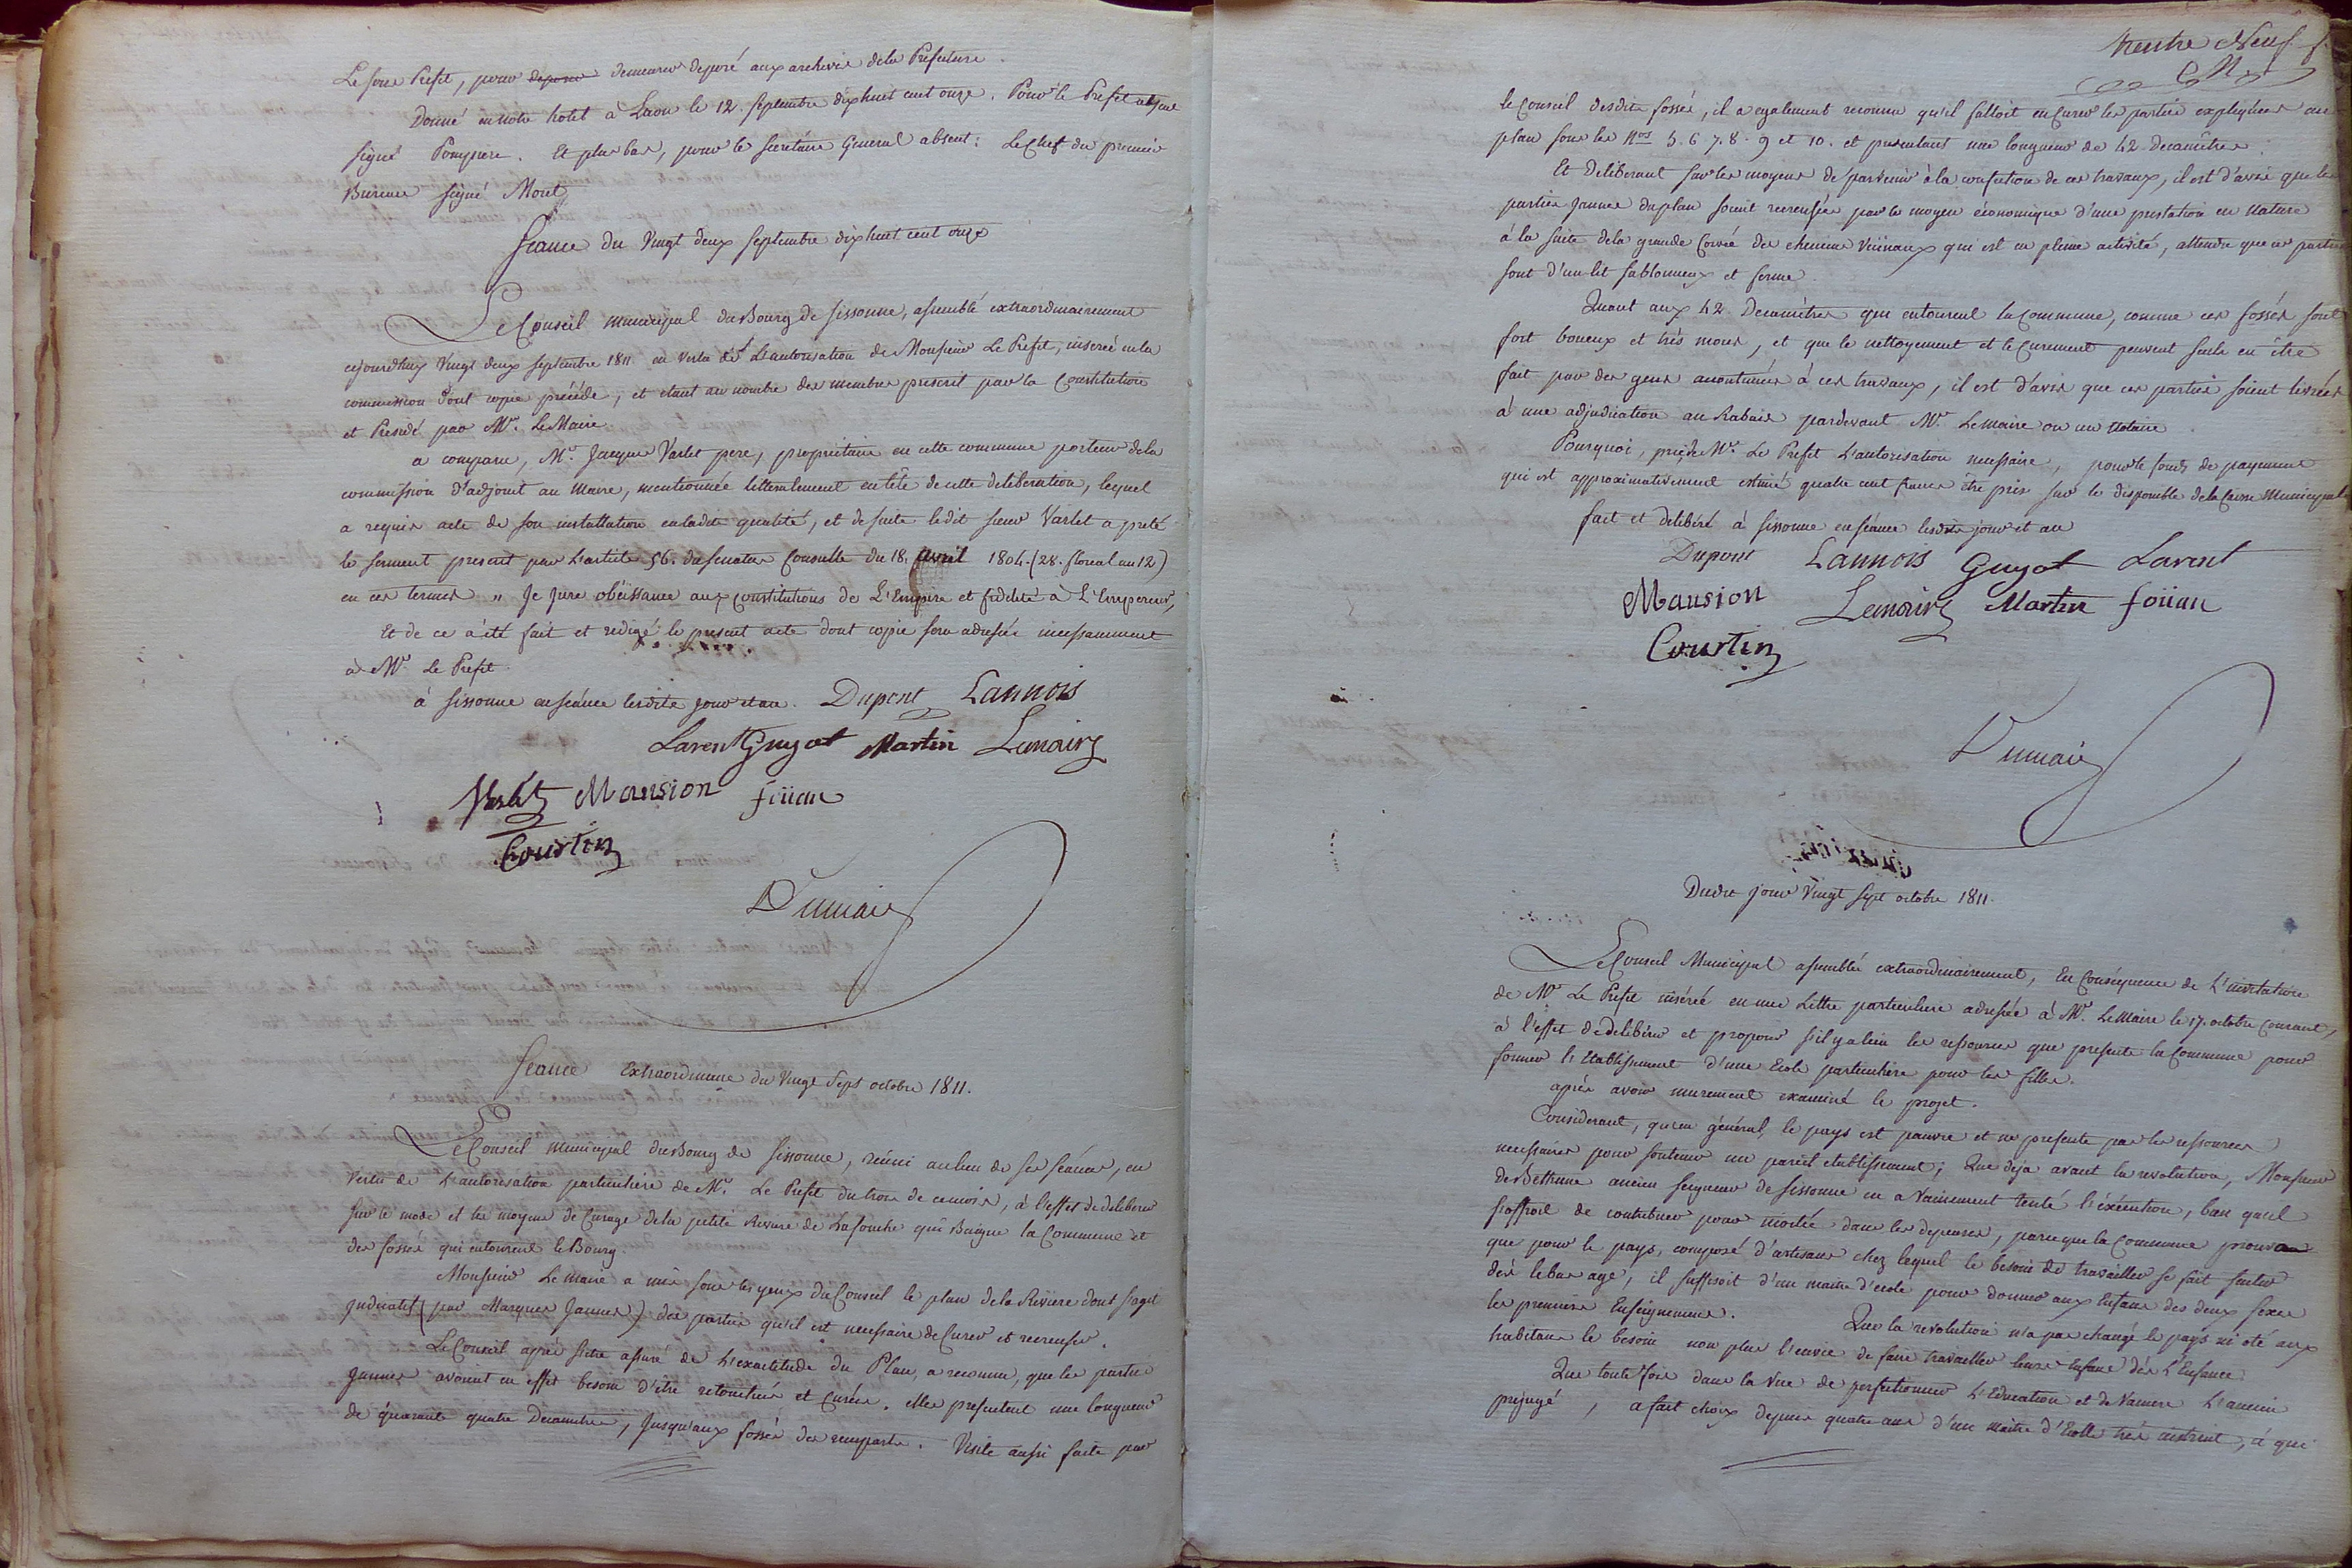 Le sous Prefet, pour deposer demeurer deposé aux archives dela Prefecture.
Donné en notre hotel à Laon le 12. Septembre dix huit cent onze. Pour le Prefet absent
signé Pompiere. Et plus bas, pour le secretaire General absent: Le Chef du premier
Bureau signé Moret
Seance du Vingt deux Septembre dix huit cent onze
Le Conseil municipal du Bourg de Sissonne, assemblé extraordinairement
cejourd'huy Vingt deux septembre 1811 en vertu de L'autorisation de Monsieur Le Prefet, inserée en la
commission dont copie précéde, et etant au nombre des membres prescrit par la Constitution
et Presidé par Mr. Le Maire.
a comparu, Mr. Jacques Varlet pere, proprietaire en cette commune porteur dela
commission d'adjoint au Maire, mentionnée litteralement en tête de cette deliberation, lequel
a requis acte de son installation en ladite qualité, et de suite ledit sieur Varlet a preté
le serment prescrit par L'article 56. du senatus Consulte du 18. avril 1804. (28. floreal an 12)
en ces termes " Je Jure obéissance aux constitutions de L'Empire et fidelité à L'Empereur,
Et de ce a été fait et redigé le present acte dont copie sera adressée incessamment
à Mr. Le Prefet.
à Sissonne en séance lesdits jour et an. Dupont Lannois
Larent Guyot Martin Lemoiry
Varlet Mansion foüan
Courtin
Dumair
Seance Extraordinaire du Vingt Sept octobre 1811.
Le Conseil municipal du Bourg de Sissonne, réuni au lieu de ses séances, en
vertu de L'autorisation particulière de Mr. Le Prefet du trois de ce mois, à l'effet de deliberer
sur le mode et les moyens de Curage dela petite Riviere de Lasouche qui Baigne la Commune et
des fossés qui entourent le Bourg.
Monsieur Le maire a mis sous les yeux du Conseil le plan dela Riviere dont s'agit
Indicatif (par Marques Jaunes) des parties qu'il est necessaire de Curer et recreuser.
Le Conseil après s'etre assuré de L'exactitude du Plan, a reconnu, que les parties
Jaunes avoient en effet besoin d'être retouchées et curées. elles presentent une longueur
de quarante quatre Decametres, Jusqu'aux fossés des remparts. Visite aussi faite par
trente Neuf
le Conseil desdits fossés, il a egalement reconnu qu'il falloit en Curer les parties expliquées au
plan sous les Nos 5. 6 7. 8. 9 et 10. et presentant une longueur de 42 Decamètres.
Et Deliberant sur les moyens de parvenir à la confection de ces travaux, il est d'avis que les
parties Jaunes du plan soient recreusées par le moyen économique d'une prestation en Nature
à la suite dela grande Corvée des chemins Vicinaux qui est en pleine activité, attendu que ces parties
sont d'un lit sablonneux et ferme.
Quant aux 42 Decamètres qui entourent la Commune, comme ces fossés sont
fort boueux et très mous, et que le nettoyement et le Curement peuvent seuls en être
fait par des gens accoutumés à ces travaux, il est d'avis que ces parties soient livrées
à une adjudication au Rabais pardevant Mr. Le maire ou un Notaire
Pourquoi, prie Mr. Le Prefet L'autorisation necessaire, pour le fonds de payement
qui est approximativement estimé quatre cent francs être pris sur le disponible dela Caisse Municipale
fait et deliberé à Sissonne en séance lesdits jour et an
Dupont Lannois Guyot Larent
Mansion Lemoiry Martin foüan
Courtin
Dumair
Dudit jour Vingt Sept octobre 1811.
Le Conseil Municipal assemblé extraordinairement, En Conséquence de L'invitation
de Mr Le Prefet insérée en une Lettre particuliere adressée à Mr. Le Maire le 17. octobre Courant,
à l'effet de deliberer et proposer s'il y a lieu les ressources que presente la Commune pour
former l'Etablissement d'une Ecole particulière pour les filles.
après avoir murement examiné le projet.
Considerant, qu'en général, le pays est pauvre et ne presente pas les ressources
necessaires pour soutenir un pareil etablissement; Que deja avant la revolution, Monsieur
de Bethune ancien seigneur de Sissonne en a Vainement tenté l'éxécution, bien qu'il
s'offroit de contribuer pour moitié dans les depenses, parceque la Commune prouva
que pour le pays, composé d'artisans chez lequel le besoin de travailler se fait sentir
dès le bas age, il suffisoit d'un maitre d'ecole pour donner aux Enfans des deux sexes
les premiers Enseignemens. Que la revolution n'a pas changé le pays ni oté aux
habitans le besoin non plus l'envie de faire travailler leurs Enfans dès L'Enfance
Que toute fois dans la Vue de perfectionner L'Education et de Vaincre L'ancien
prejugé, a fait choix depuis quatre ans d'un Maitre d'Ecolle très instruit, à qui